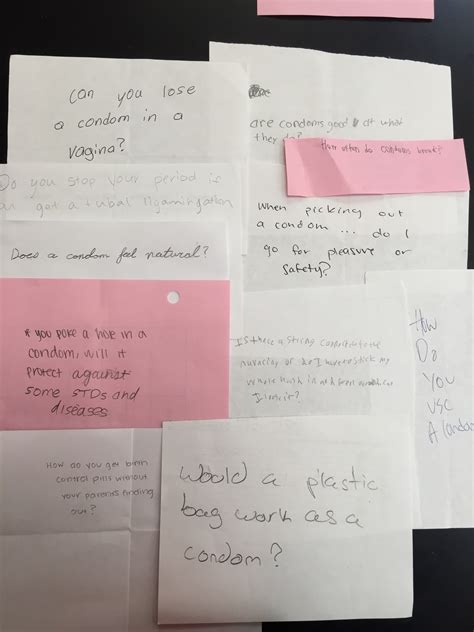 Can you lose
a condom in a
vagina?
are condoms good at what
they do?
How often do condoms break?
Do you stop your period is
got a tubal
When picking out
a condom ... do I
go for pleasure or
safety?
Does a condom feel natural?
* if you poke a hole in a
condom, will it
protect against
some STDs and
diseases
Is there a strong
my
in
How
Do
You
use
A condom
How do you get birth
control pills without
your parents finding
out?
Would a plastic
bag work as a
condom?